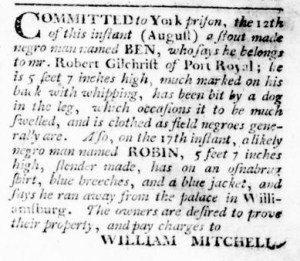 COMMITTED to York prison, the 12th
of this instant (August) a stout made
negro man named BEN, who says he belongs
to mr. Robert Gilchrist of Port Royal; he
is 5 feet 7 inches high, much marked on his
back with whipping, has been bit by a dog
in the leg, which occasions it to be much
swelled, and is clothed as field negroes gene-
rally are. Also, on the 17th instant, a likely
negro man named ROBIN, 5 feet 7 inches
high, slender made, has on an osnabrug
shirt, blue breeches, and a blue jacket, and
says he ran away from the palace in Willi-
amsburg. The owners are desired to prove
their property, and pay charges to
WILLIAM MITCHELL